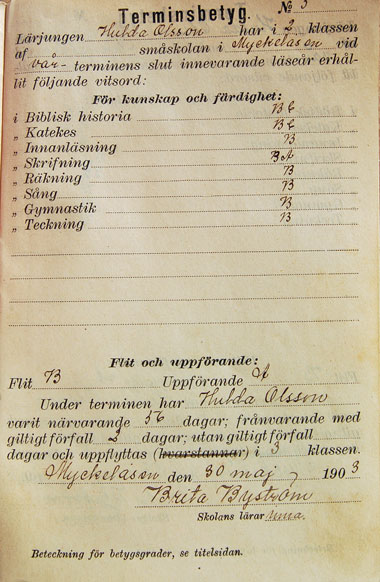 Terminsbetyg. № 3
Lärjungen Hulda Olsson har i 2 klassen
af småskolan i Myckelåsen vid
vår-terminens slut innevarande läseår erhål-
lit följande vitsord:
För kunskap och färdighet:
i Biblisk historia
„ Katekes
„ Innanläsning B
„ Skrifning BA
„ Räkning B
„ Sång B
„ Gymnastik B
„ Teckning B
Flit och uppförande:
Flit B Uppförande A
Under terminen har Hulda Olsson
varit närvarande 56 dagar; frånvarande med
giltigt förfall 2 dagar; utan giltigt förfall
dagar och uppflyttas (kvarstannar) i 3 klassen.
Myckelåsen den 30 maj 1903
Brita Byström
Skolans lärarinna.
Beteckning för betygsgrader, se titelsidan.